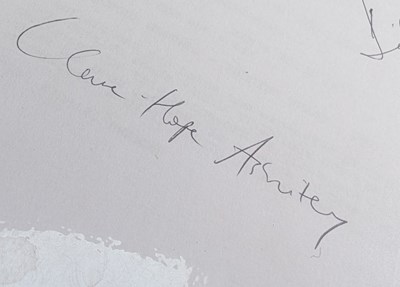 Clare-Hope Ashitey